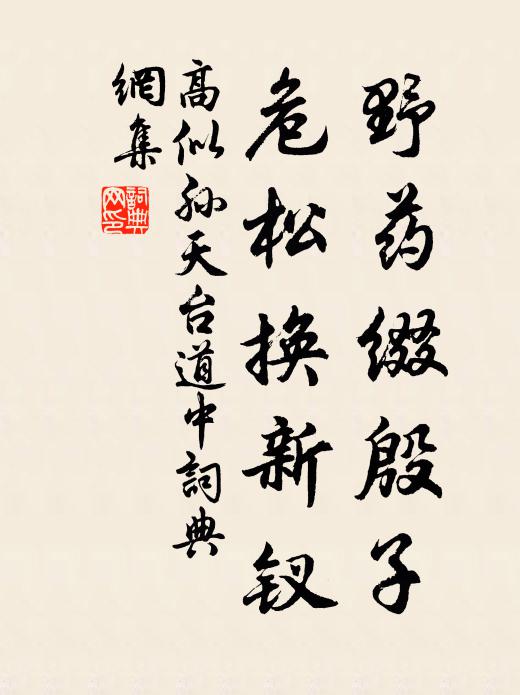 野药缀殷子
危松换新钗
高似孙天台道中詞典
網集
詞典
网印